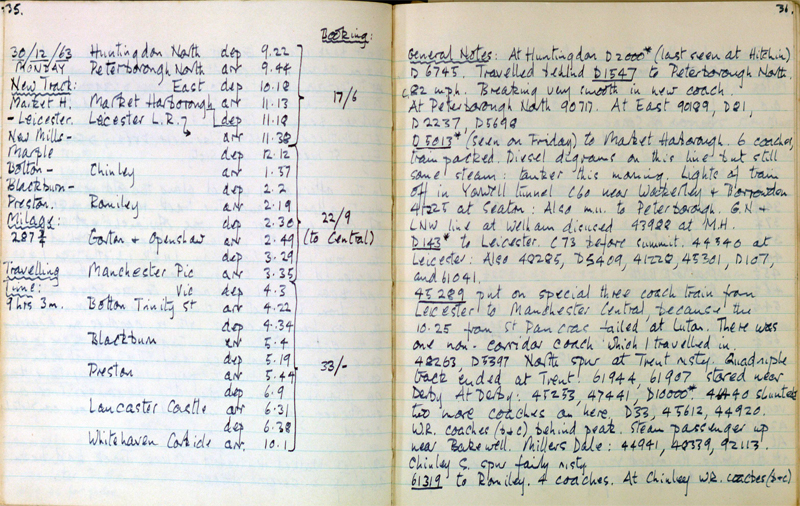 35.
Booking:
30/12/63 Huntingdon North dep 9.22
MONDAY Peterborough North arr 9.44
New Track: East dep 10.18
Market H. Market Harborough arr 11.13 17/6
- Leicester. Leicester L.R. dep 11.18
New Mills- arr 11.38
Marple dep 12.12
Bolton - Chinley arr 1.37
Blackburn- dep 2.2
Preston. Romiley arr 2.19
Milage: dep 2.30 22/9
287¾ Gorton & Openshaw arr 2.49 (to Central)
dep 3.29
Travelling Manchester Pic arr 3.35
Time: Vic dep 4.3
9 hrs 3m. Bolton Trinity St arr 4.22
dep 4.34
Blackburn arr 5.4
dep 5.19
Preston arr 5.44 33/-
dep 6.9
Lancaster Castle arr 6.31
dep 6.38
Whitehaven Corkicle arr. 10.1
36.
General Notes: At Huntingdon D2000* (last seen at Hitchin)
D6745. Travelled behind D1547 to Peterborough North.
c82 mph. Breaking very smooth in new coach.
At Peterborough North 90717. At East 90189, D21,
D2237, D5698
D5013* (seen on Friday) to Market Harborough. 6 coaches,
train packed. Diesel diagrams on this line but still
some steam: tanker this morning. Lights of train
off in Yarwell tunnel c60 near Wakerley & Barrowden
41225 at Seaton: Also m.u. to Peterborough. G.N &
LNW line at Welham disused 43988 at M.H.
D143* to Leicester. C73 before summit. 44540 at
Leicester: Also 48285, D5409, 41228, 45301, D107,
and 61041.
45289 put on special three coach train from
Leicester to Manchester Central because the
10.25 from St Pancras failed at Luton. There was
one non-corridor coach which I travelled in.
48263, D5397 North spur at Trent rusty. Quadruple
track ended at Trent. 61944, 61907 stored near
Derby At Derby: 45253, 47441, D10000*. shunted
two more coaches on here, D33, 45612, 44920.
W.R. coaches (b+c) behind peak. Steam passenger up
near Bakewell. Millers Dale: 44941, 48339, 92113.
Chinley S. spur fairly rusty
61319 to Romiley. 4 coaches. At Chinley WR. coaches (b+c)